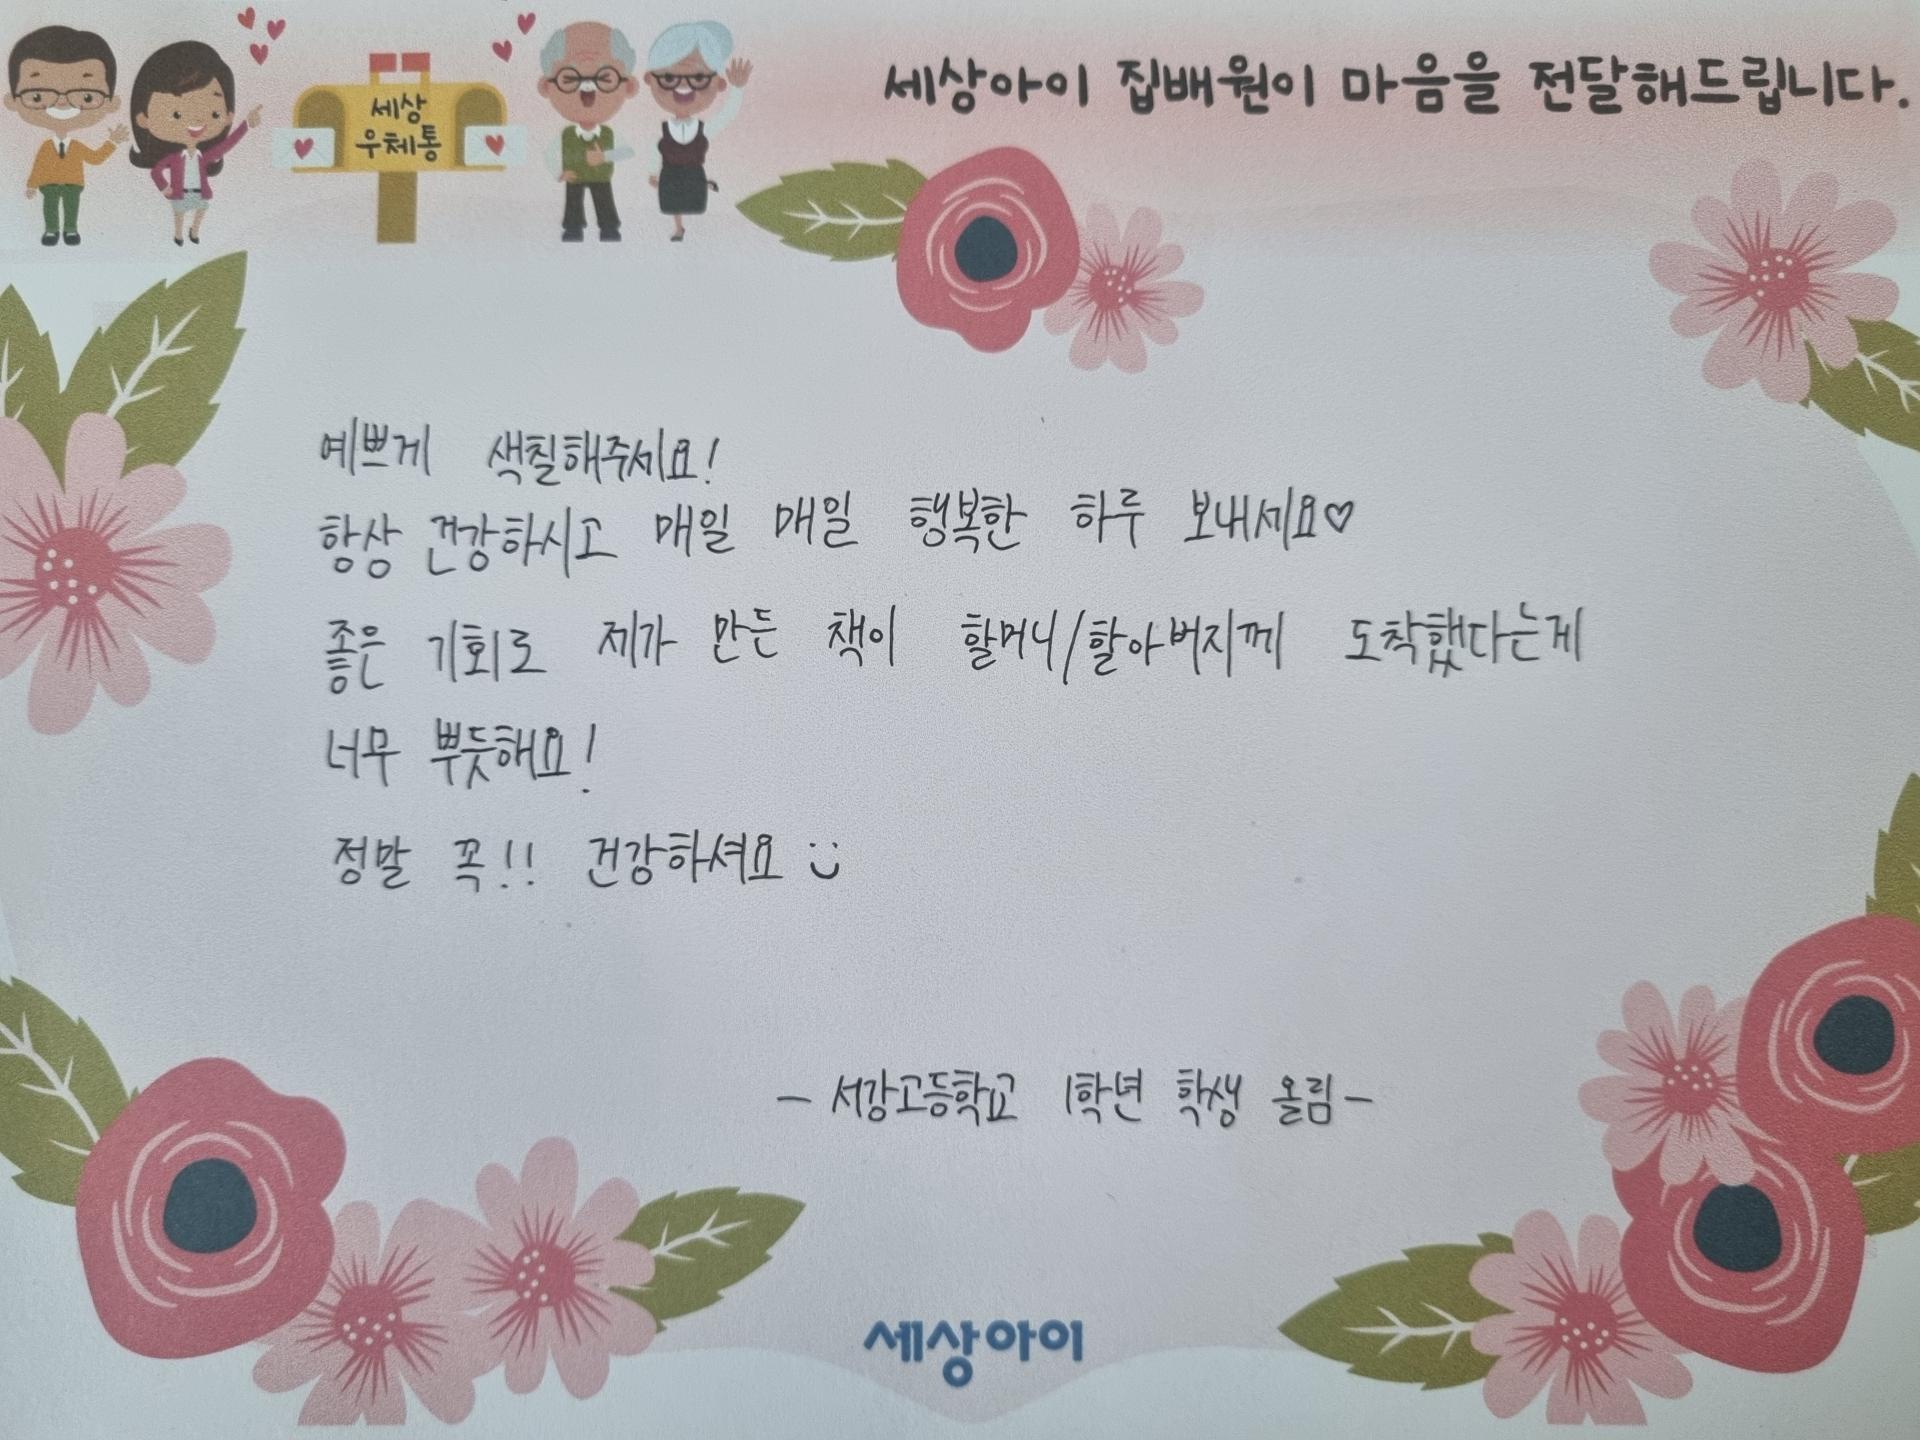 세상아이 집배원이 마음을 전달해드립니다.
세상
우체통
예쁘게 색칠해주세요!
항상 건강하시고 매일 매일 행복한 하루 보내세요♡
좋은 기회로 제가 만든 책이 할머니/할아버지께 도착했다는게
너무 뿌듯해요!
정말 꼭!! 건강하셔요 ☺
- 서강고등학교 1학년 학생 올림 -
세상아이